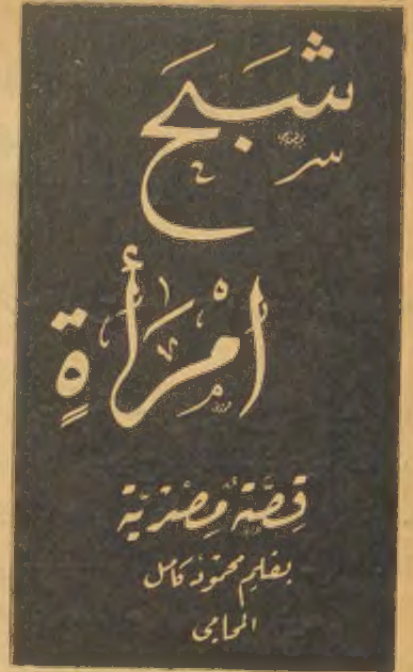 شَبَح
امْرَأةٍ
قِصَّة مِصْرِيَّة
بقلم محمود كامل
المحامي